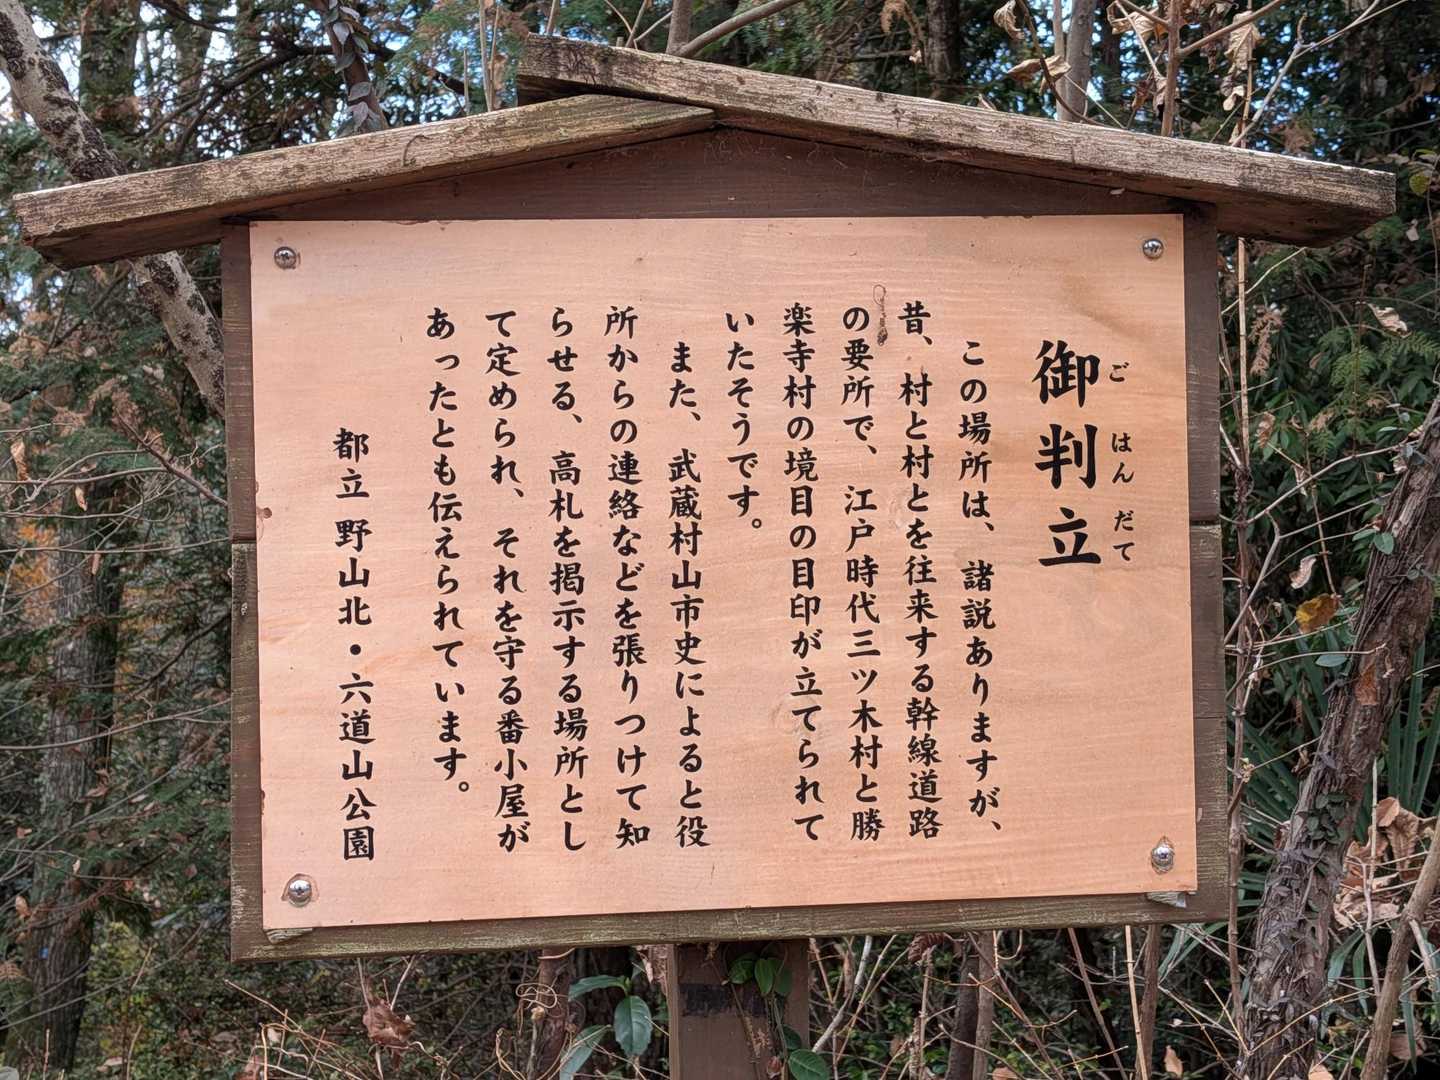 御判立
ごはんだて
この場所は、諸説ありますが、
昔、村と村とを往来する幹線道路
の要所で、江戸時代三ツ木村と勝
楽寺村の境目の目印が立てられて
いたそうです。
また、武蔵村山市史によると役
所からの連絡などを張りつけて知
らせる、高札を掲示する場所とし
て定められ、それを守る番小屋が
あったとも伝えられています。
都立 野山北・六道山公園